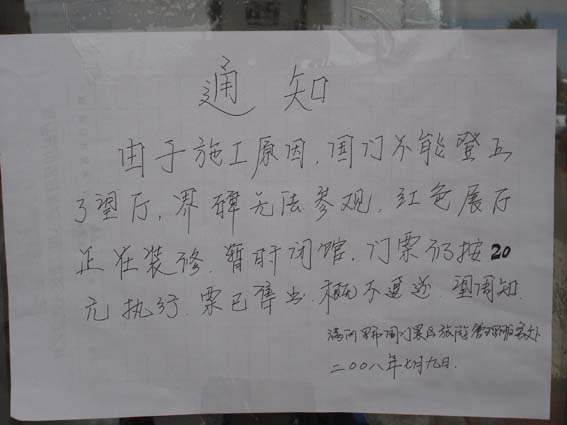 通知
由于施工原因,国门不能登上
了望厅,界碑无法参观,红色展厅
正在装修,暂时闭馆,门票仍按20
元执行,票已售出,概不退还,望周知.
满洲里市国门景区旅游管理服务处
二〇〇八年七月九日.